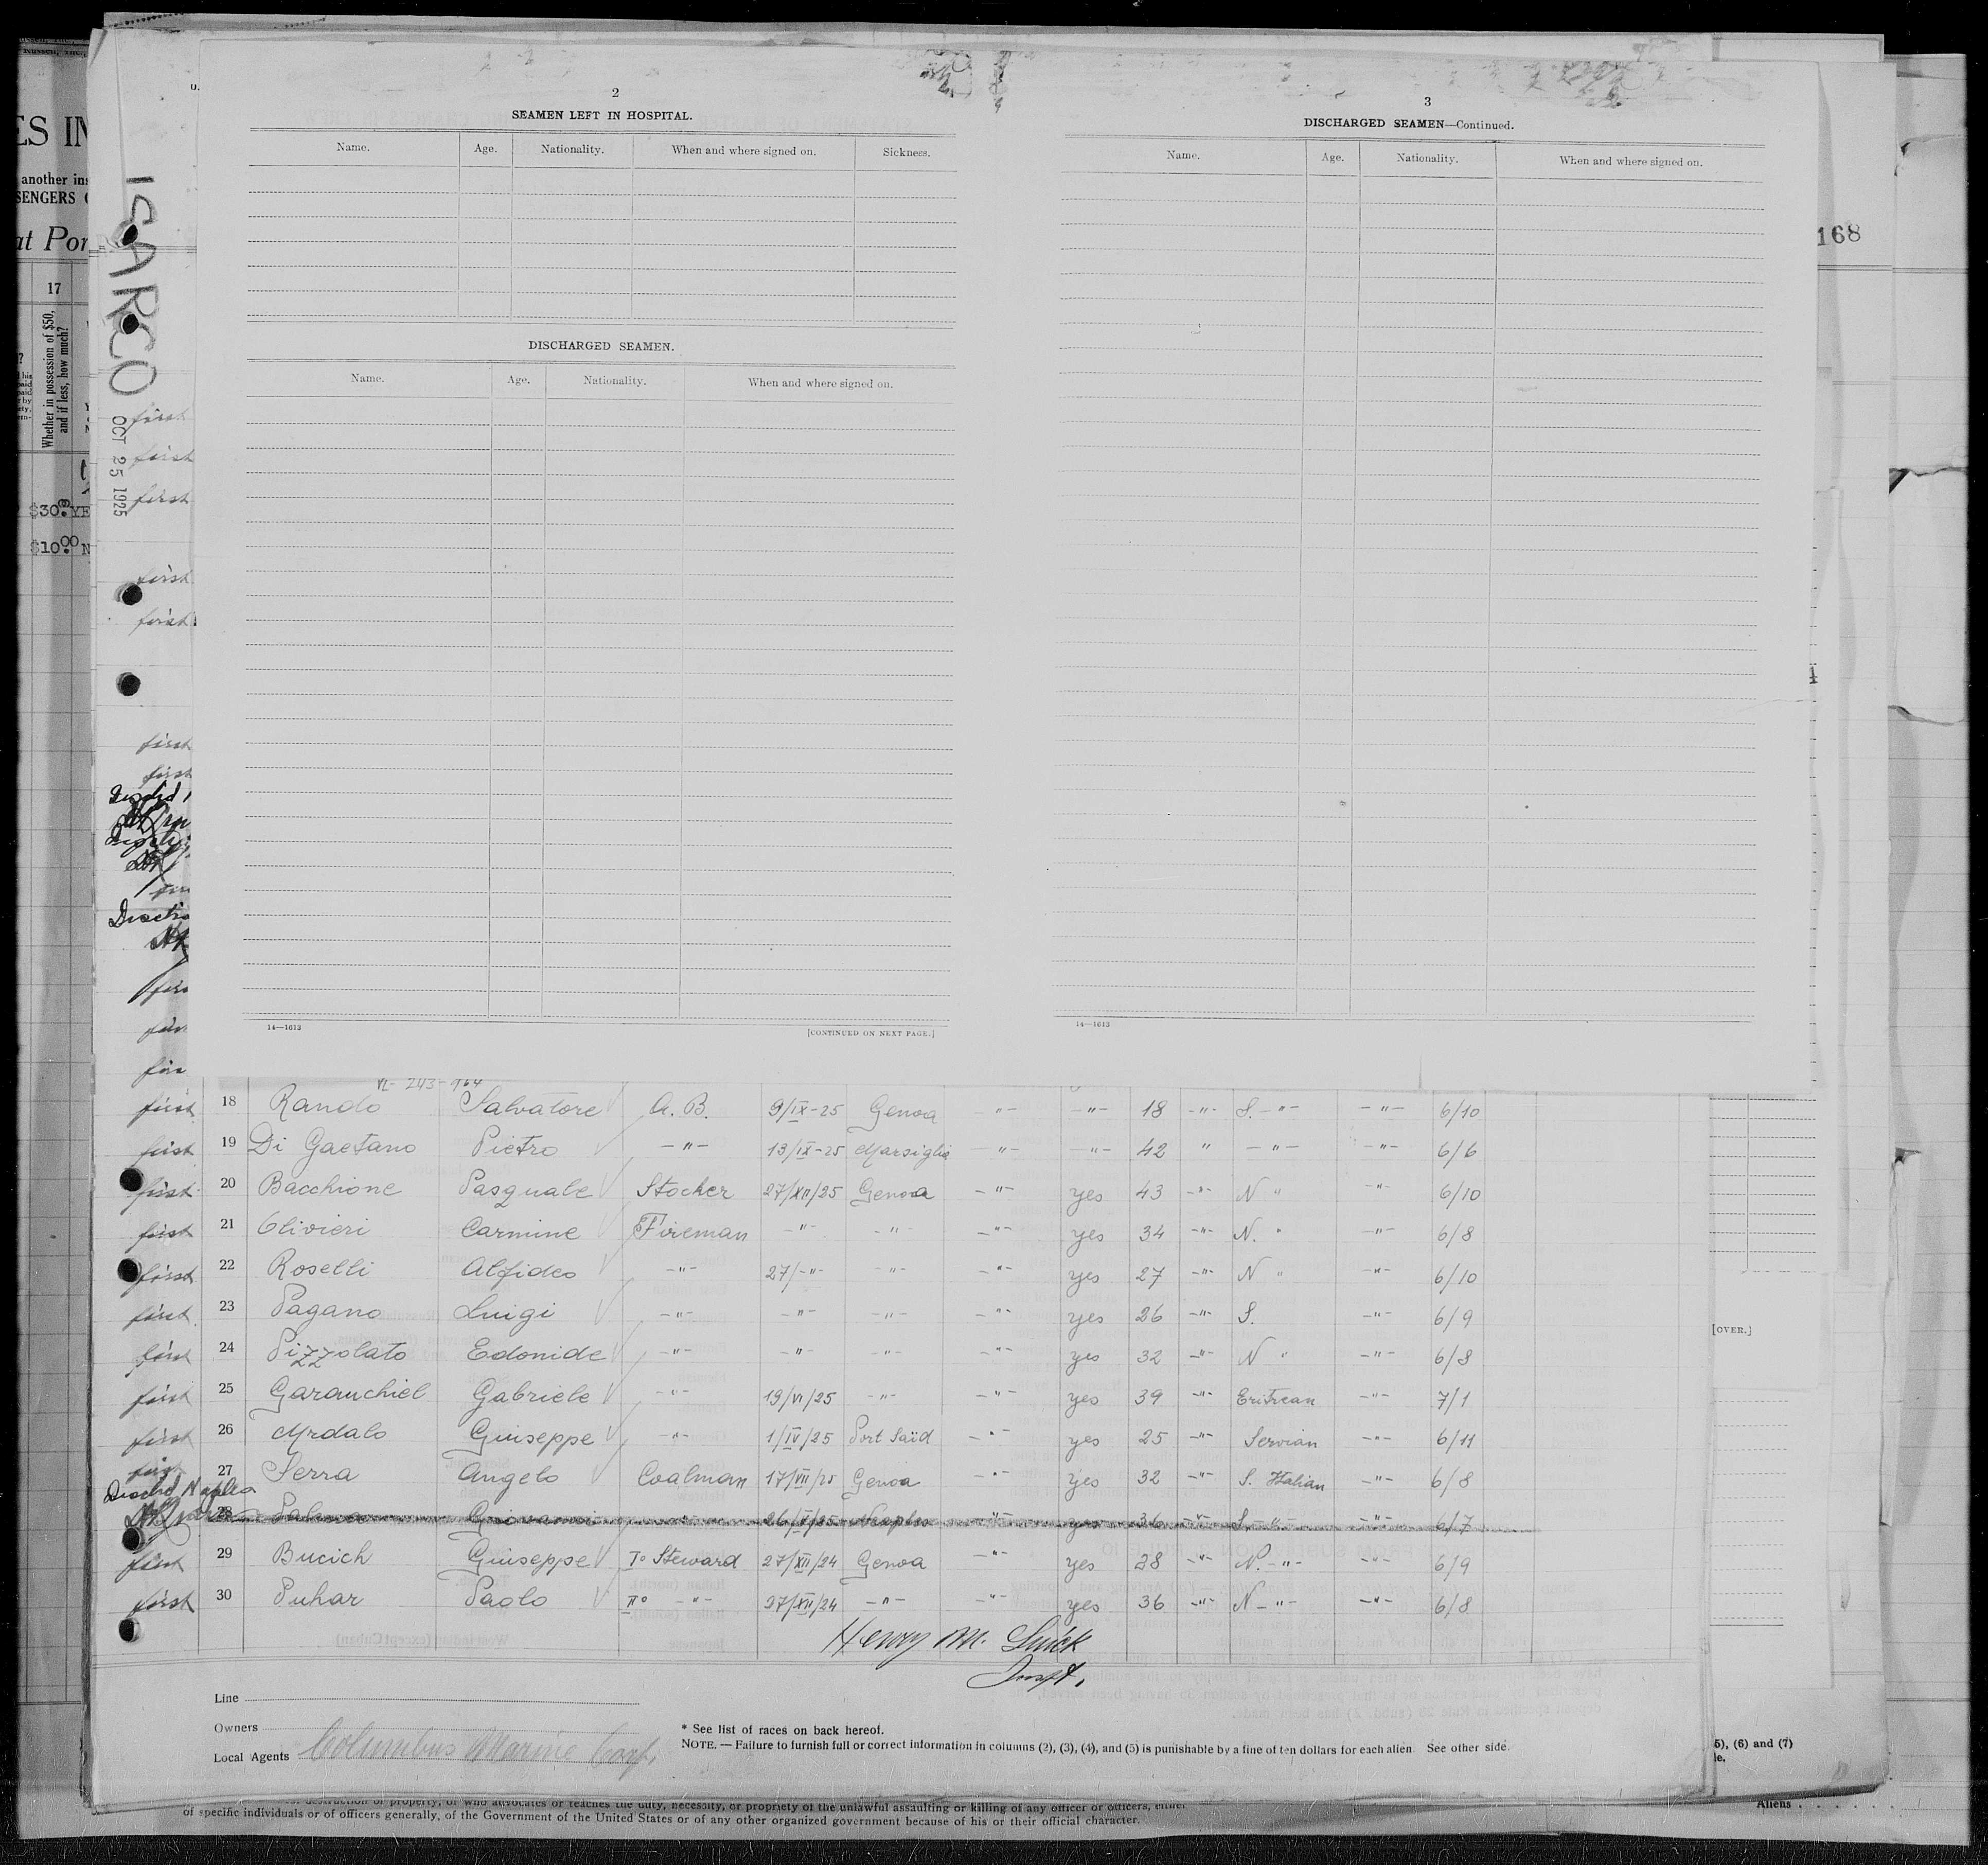 ISARCO
OCT 25 1925
2
SEAMEN LEFT IN HOSPITAL.
Name. Age. Nationality. When and where signed on. Sickness.
DISCHARGED SEAMEN.
Name. Age. Nationality. When and where signed on.
14—1613 [CONTINUED ON NEXT PAGE.]
3
DISCHARGED SEAMEN—Continued.
Name. Age. Nationality. When and where signed on.
14—1613
168
17
Whether in possession of $50, and if less, how much?
another ins
SENGERS
at Por
$30.
$10.00
first
first
first
first
first
first
first
first 18 Rando Salvatore A. B. 9/IX-25 Genoa -"- -"- 18 -"- S. -"- -"- 6/10
first 19 Di Gaetano Pietro -"- 13/IX-25 Marsiglia -"- -"- 42 " -"- -"- 6/6
first 20 Bacchione Pasquale Stocher 27/XII/25 Genoa -"- yes 43 -"- N " -"- 6/10
first 21 Olivieri Carmine Fireman -"- -"- -"- yes 34 -"- N. " -"- 6/8
first 22 Roselli Alfideo -"- 27/-"- -"- -"- yes 27 -"- N " -"- 6/10
first 23 Pagano Luigi -"- -"- -"- -"- yes 26 -"- S. -"- 6/9
first 24 Pizzolato Edonide -"- -"- -"- -"- yes 32 -"- N " -"- 6/8
first 25 Garauchiel Gabriele -"- 19/VI/25 -"- -"- yes 39 -"- Eritrean -"- 7/1
first 26 Mrdalo Giuseppe -"- 1/IV/25 Port Saïd -"- yes 25 -"- Servian -"- 6/11
first 27 Serra Angelo Coalman 17/VII/25 Genoa -"- yes 32 -"- S. Italian -"- 6/8
Dischd Naples
28 Giovanni Naples -"- yes 36 -"- S. -"- -"- 6/7
first 29 Bucich Giuseppe I° Steward 27/XII/24 Genoa -"- yes 28 -"- N. -"- -"- 6/9
first 30 Puhar Paolo II° -"- 27/XII/24 -"- -"- yes 36 -"- N -"- -"- 6/8
Henry M.
Inspt.
Line
Owners
Local Agents Columbus Marine Corp.
* See list of races on back hereof.
NOTE. — Failure to furnish full or correct information in columns (2), (3), (4), and (5) is punishable by a fine of ten dollars for each alien. See other side.
[OVER.]
5), (6) and (7)
Aliens
destruction of property, or who advocates or teaches the duty, necessity, or propriety of the unlawful assaulting or killing of any officer or officers, either
of specific individuals or of officers generally, of the Government of the United States or of any other organized government because of his or their official character.